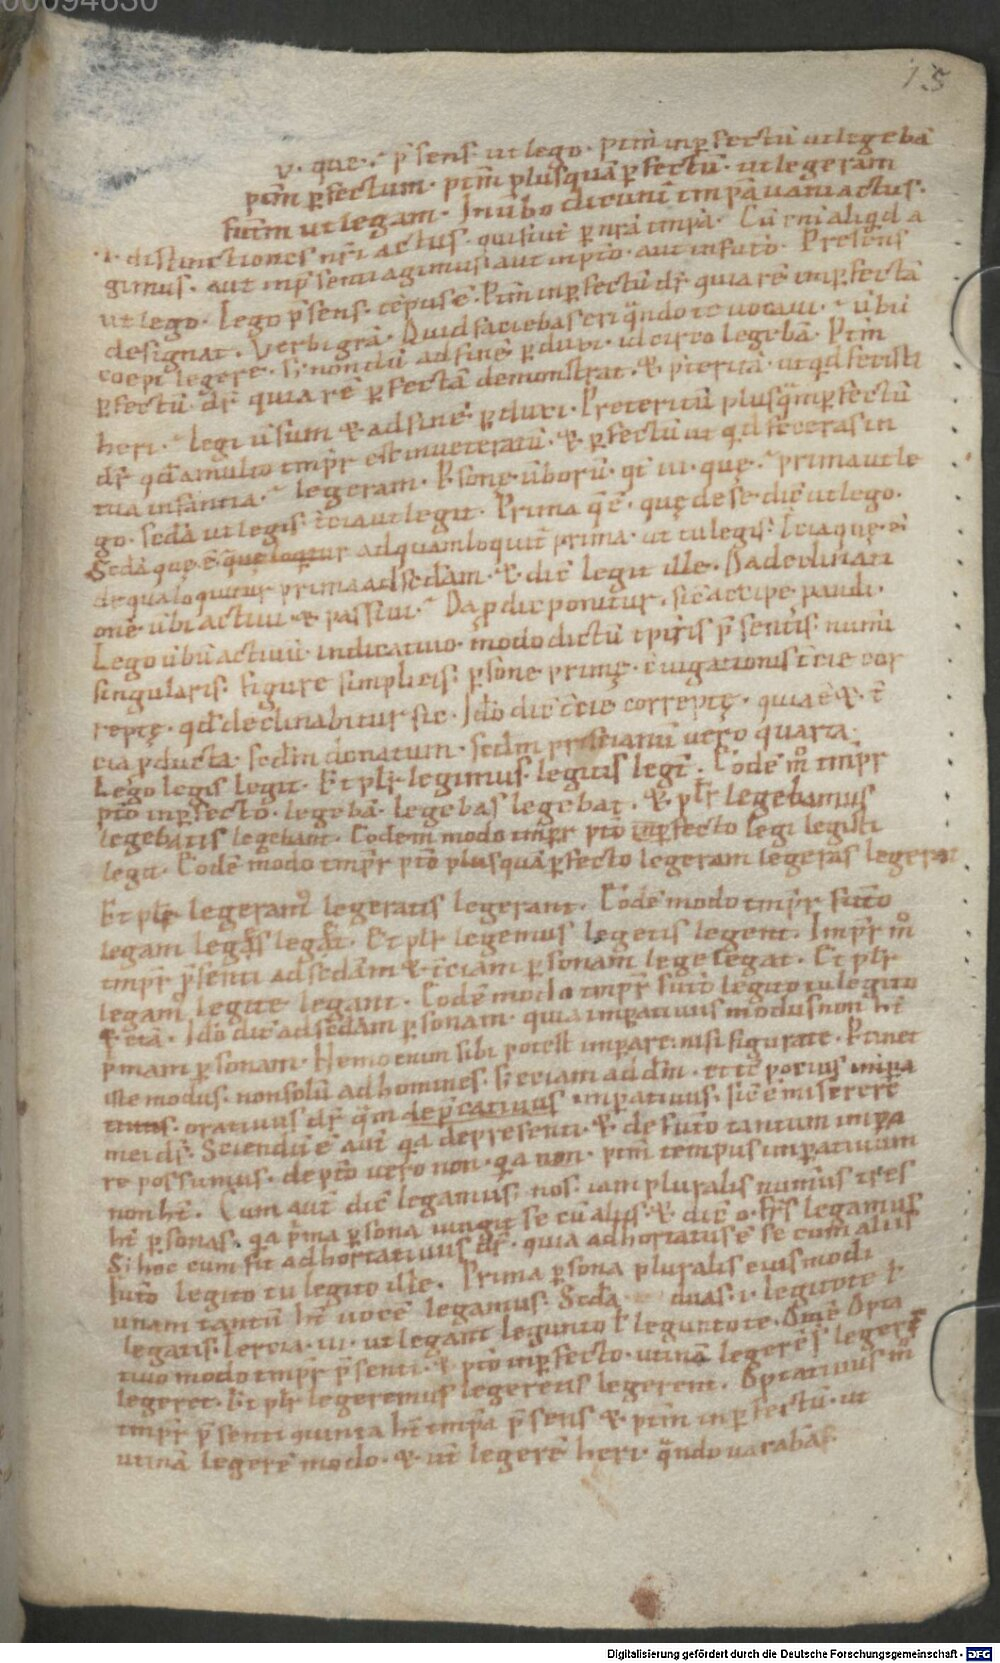 00094830
15
v. que. p̄sens ut lego. ptm̄ inp̄fectū ut legebā
ptm̄ p̄fectum. ptm̄ plusquā p̄fectū. ut legeram
futm̄ ut legam. In úbo dicunt̄ tmpa uani actus.
.i. distinctiones nr̄i actus. quifiut p̄ nr̄a tmpa. Cū eni aliqd a
gimus. aut inp̄senti agimus aut inpto. aut infuto. Presens
ut lego. Lego p̄sens. tēpus ē. Ptm̄ inp̄fectū dr̄ quia rē imp̄fectā
designat. Verbi grā. Quid faciebas eri qn̄do te uocaui. úbū
coepi legere. s; non dū ad finē p̄duxi. idcirco legebā. Ptm̄
p̄fectū. dr̄ quia rē p̄fectā demonstrat. & p̄teritā. ut qd fecisti
heri. legi usum & ad finē p̄duxi. Preteritū plusqm̄ p̄fectū
dr̄ qd̄ a multo tmp̄r est inueteratū. & p̄fectū ut qd feceras in
tua infantia. legeram. P̄sonę. úborū. qt̄ .iii. quę. prima ut le
go. sedā ut legis. t̄cia ut legit. Prima q̄ ē. quę de se. dic̄ ut lego.
Sedā quę. ē que loqtur ad quam loquit̄ prima. ut tu legis. t̄cia que. ē
de qua loquitur prima ad sedam. & dic̄ legit ille. Da declinati
onē. úbi actiui. & passiui. Da p̄ dic ponitur. sic̄ accipe pandi.
Lego úbū actiuū. indicatiuo. modo dictū tp̄ris p̄sentis. num̄i
singularis. figure simplicis. p̄sone primę. ɔiugationis t̄cie cor
reptę. qd̄ declinabitur sic. Ido dic̄ t̄cie correptę. quia ē &. t̄
cia p̄ducta. sedm̄ donatum. sedm̄ priscianū uero quarta.
Lego legis legit. Et plr̄ legimus. legitis legt̄. Eodē m̊ tmp̄r
pto inp̄fecto. legebā. legebas legebat. & plr̄ legebamus
legebatis legebant. Eodem modo tmp̄r pto inp̄fecto legi legisti
legit. Eodē modo tmp̄r pto plusquā p̄fecto legeram legeras legerat
Et plr̄ legeram᷒ legeratis legerant. Eodē modo tmp̄r futo
legam leges leget. Et plr̄ legemus legetis legent. Imp̄r m̊
tmp̄r p̄senti ad sedam & t̄ciam p̄sonam lege legat. Et plr̄
legam legite legant. Eodē modo tmp̄r futo legito tu legito
& etā. Ido dic̄ ad sedam p̄sonam. quia imp̄atiuus modus non ht̄
p̄mam p̄sonam. Nemo enim sibi potest imp̄are. nisi figurate. P̄tinet
iste modus. non solū ad homines. s; etiam ad dm̄.
oratiuus dr̄ qm̄ dep̄catiuus .inp̄atiuus. sic ē miserere
mei ds̄. Sciendū ē aut̄ qa de presenti. & de futo tantum impa
re possumus. de pto uero non. qa non. ptm̄ tempus imp̄atiuum
non ht̄. Cum aut̄ dic̄ legamus. nos. iam pluralis num̄us tres
ht̄ p̄sonas. qa p̄ma p̄sona iungit se cū aliis. & dic̄ o fr̄s legamus
Si hoc cum fit adhortatiuus dr̄. quia adhortatus ē se cum aliis
Futo legito tu legito ille. Prima p̄sona pluralis eiusmodi
unam tantū ht̄ uocē legamus. Scda duas .i. legitote ł
legatis. Tercia .iii. ut legant legunto ł leguntote. Om̄ē Opta
tiuo modo tmp̄r p̄senti. & pto inp̄fecto. utinā legerē legeres
legeret. Et plr̄ legeremus legeretis legerent. Optatiuus m̊
tmp̄r p̄senti quinta ht̄ tmpa p̄sens & ptm̄ inp̄fectū. ut
utinā legerē modo. & ut̄ legerē heri. qn̄do uacabā
Digitalisierung gefördert durch die Deutsche Forschungsgemeinschaft - DFG